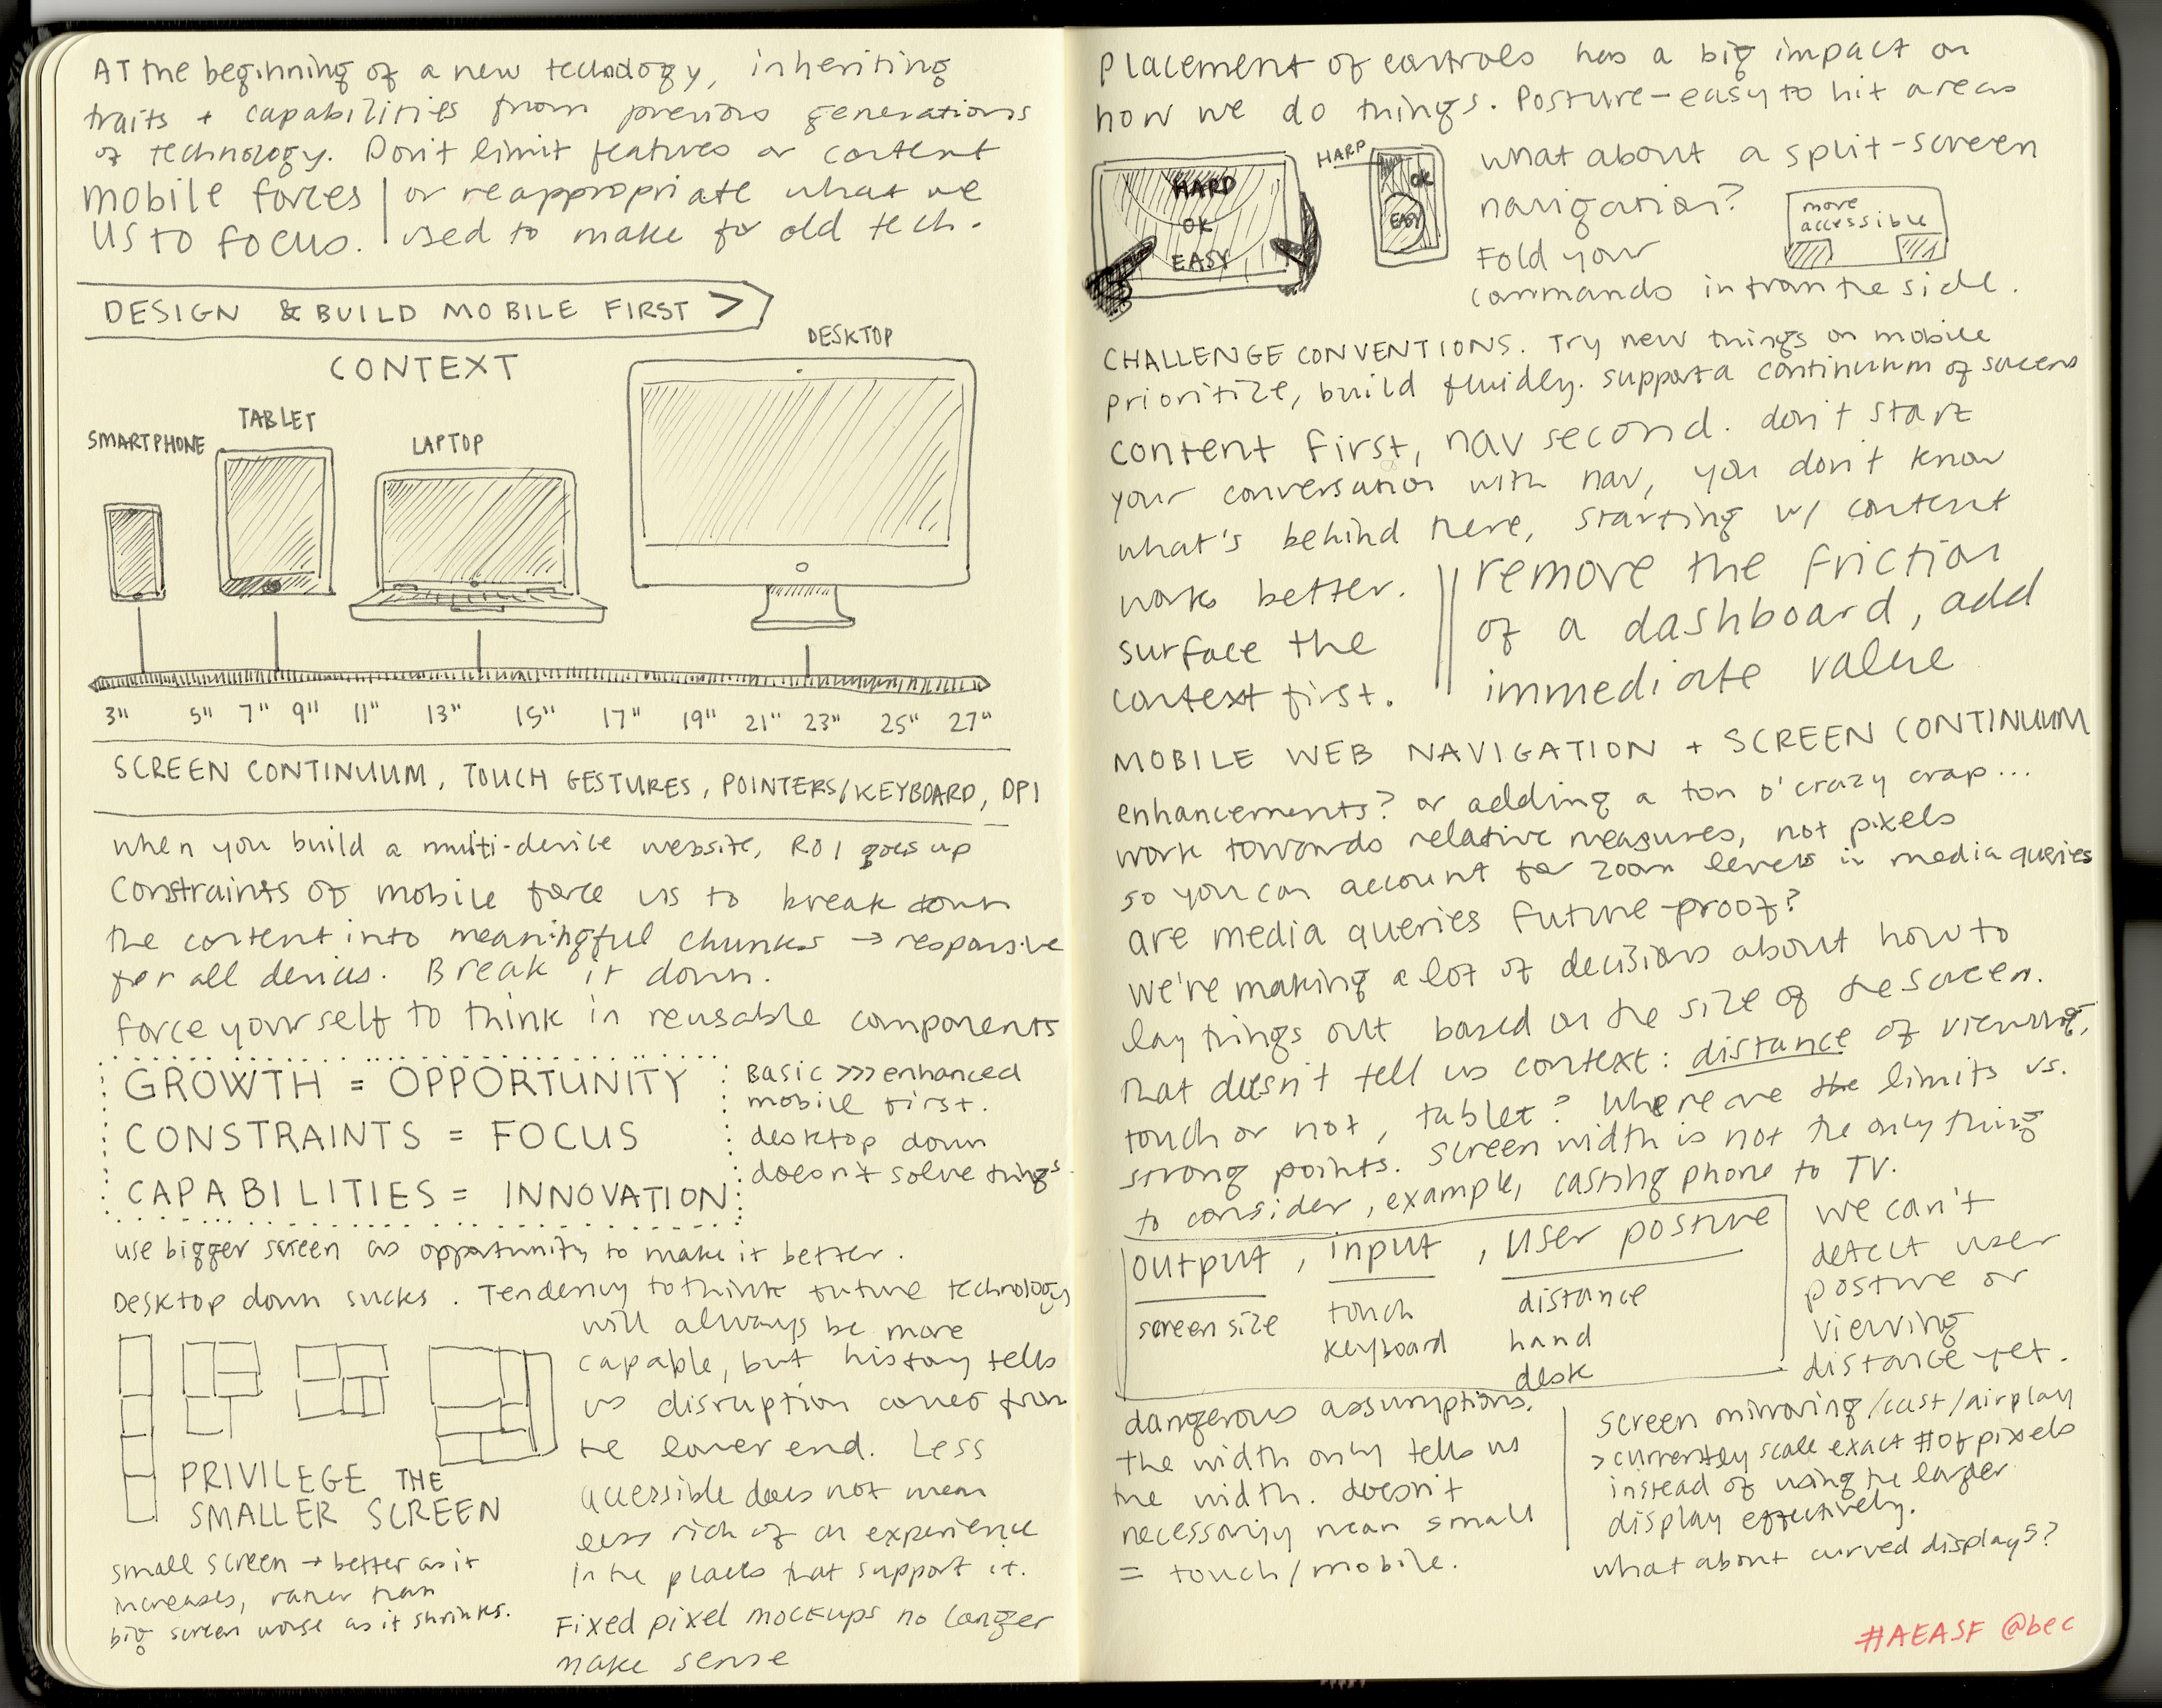 AT the beginning of a new technology, inheriting
traits + capabilities from previous generations
of technology. Don't limit features or content
mobile forces | or reappropriate what we
us to focus. | used to make for old tech.
DESIGN & BUILD MOBILE FIRST >
CONTEXT
SMARTPHONE
TABLET
LAPTOP
DESKTOP
3" 5" 7" 9" 11" 13" 15" 17" 19" 21" 23" 25" 27"
SCREEN CONTINUUM, TOUCH GESTURES, POINTERS/KEYBOARD, DPI
when you build a multi-device website, ROI goes up
Constraints of mobile force us to break down
the content into meaningful chunks → responsive
for all devices. Break it down.
force yourself to think in reusable components
GROWTH = OPPORTUNITY
CONSTRAINTS = FOCUS
CAPABILITIES = INNOVATION
Basic >>> enhanced
mobile first.
desktop down
doesn't solve things.
use bigger screen as opportunity to make it better.
Desktop down sucks. Tendency to think future technology
will always be more
capable, but history tells
us disruption comes from
the lower end. Less
accessible does not mean
less rich of an experience
in the places that support it.
Fixed pixel mockups no longer
make sense
PRIVILEGE THE
SMALLER SCREEN
small screen → better as it
increases, rather than
big screen worse as it shrinks.
Placement of controls has a big impact on
how we do things. Posture - easy to hit areas
HARD
OK
EASY
HARD
OK
EASY
what about a split-screen
navigation?
Fold your
commands in from the side.
more
accessible
CHALLENGE CONVENTIONS. Try new things on mobile
prioritize, build fluidly. support a continuum of screens
content first, nav second. don't start
your conversation with nav, you don't know
what's behind here, starting w/ content
works better.
surface the
context first.
remove the friction
of a dashboard, add
immediate value
MOBILE WEB NAVIGATION + SCREEN CONTINUUM
enhancements? or adding a ton o' crazy crap...
work towards relative measures, not pixels
so you can account for zoom levels in media queries
are media queries future-proof?
we're making a lot of decisions about how to
lay things out based on the size of the screen.
that doesn't tell us context: distance of viewing,
touch or not, tablet? Where are the limits vs.
strong points. screen width is not the only thing
to consider, example, casting phone to TV.
output, input, user posture
screen size
touch
keyboard
distance
hand
desk
we can't
detect user
posture or
viewing
distance yet.
dangerous assumptions.
the width only tells us
the width. doesn't
necessarily mean small
= touch/mobile.
screen mirroring/cast/airplay
> currently scale exact # of pixels
instead of using the larger
display effectively.
what about curved displays?
#AEASF @bec